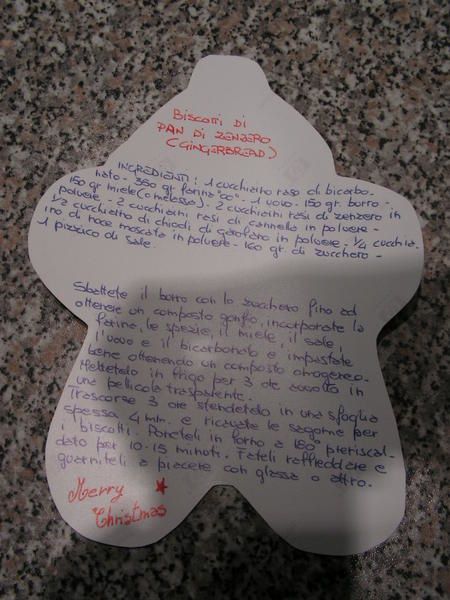 BISCOTTI DI
PAN DI ZENZERO
(GINGERBREAD)
INGREDIENTI: 1 cucchiaino raso di bicarbo-
nato - 350 gr farina "00" - 1 uovo - 150 gr. burro -
150 gr miele (o melassa) - 2 cucchiaini rasi di zenzero in
polvere - 2 cucchiaini rasi di cannella in polvere -
1/2 cucchiaino di chiodi di garofano in polvere - 1/4 cucchia-
ino di noce moscata in polvere - 160 gr di zucchero -
1 pizzico di sale.
Sbattete il burro con lo zucchero fino ad
ottenere un composto gonfio, incorporate la
farina, le spezie, il miele, il sale,
l'uovo e il bicarbonato e impastate
bene ottenendo un composto omogeneo.
Mettetelo in frigo per 3 ore avvolto in
una pellicola trasparente.
Trascorse 3 ore stendetelo in una sfoglia
spessa 4 mm. e ricavate le sagome per
i biscotti. Poneteli in forno a 180° preriscal-
dato per 10-15 minuti. Fateli raffreddare e
guarniteli a piacere con glassa o altro.
Merry
Christmas